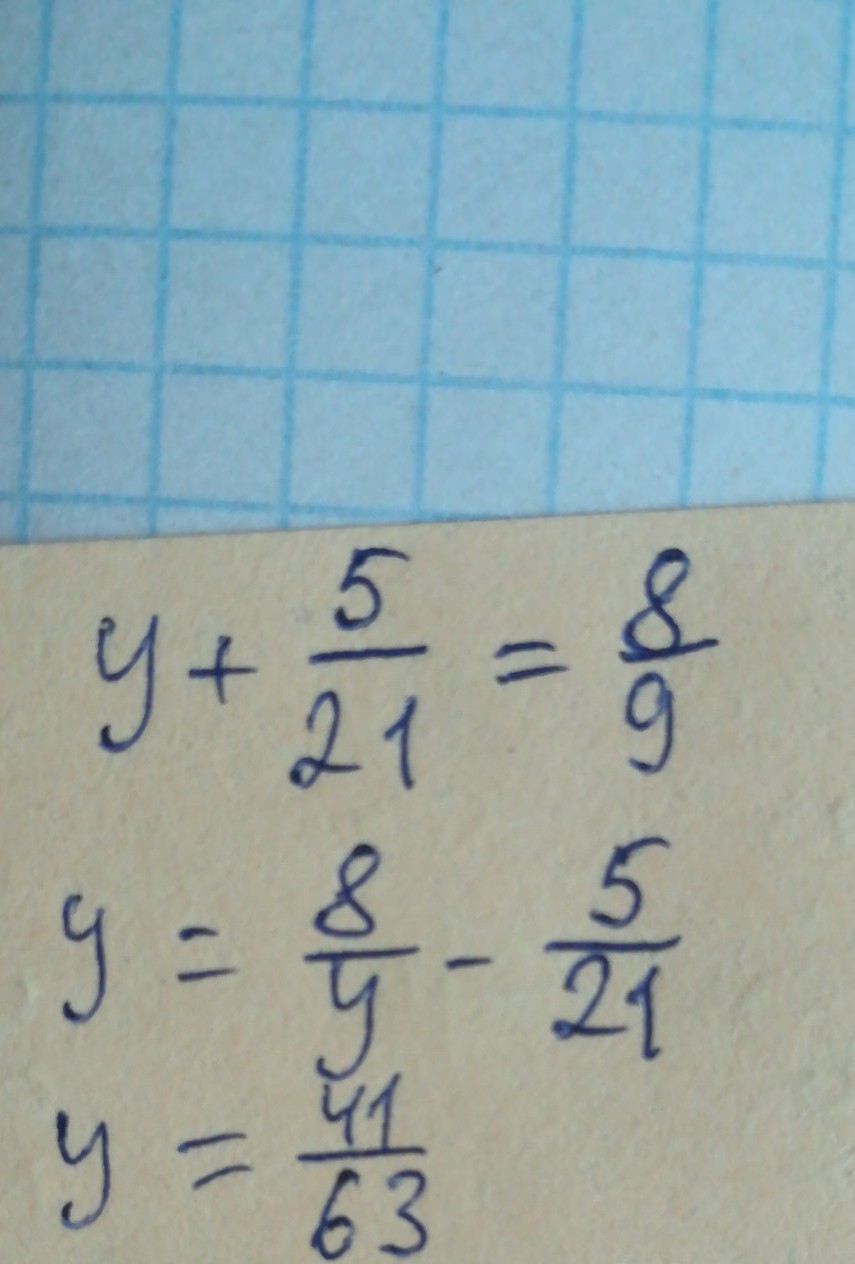 y + 5/21 = 8/9
y = 8/y - 5/21
y = 41/63